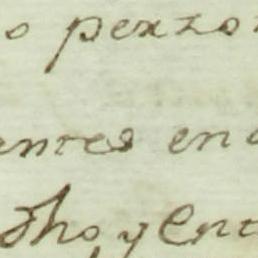 o perzon
entes en
dho, y Ent